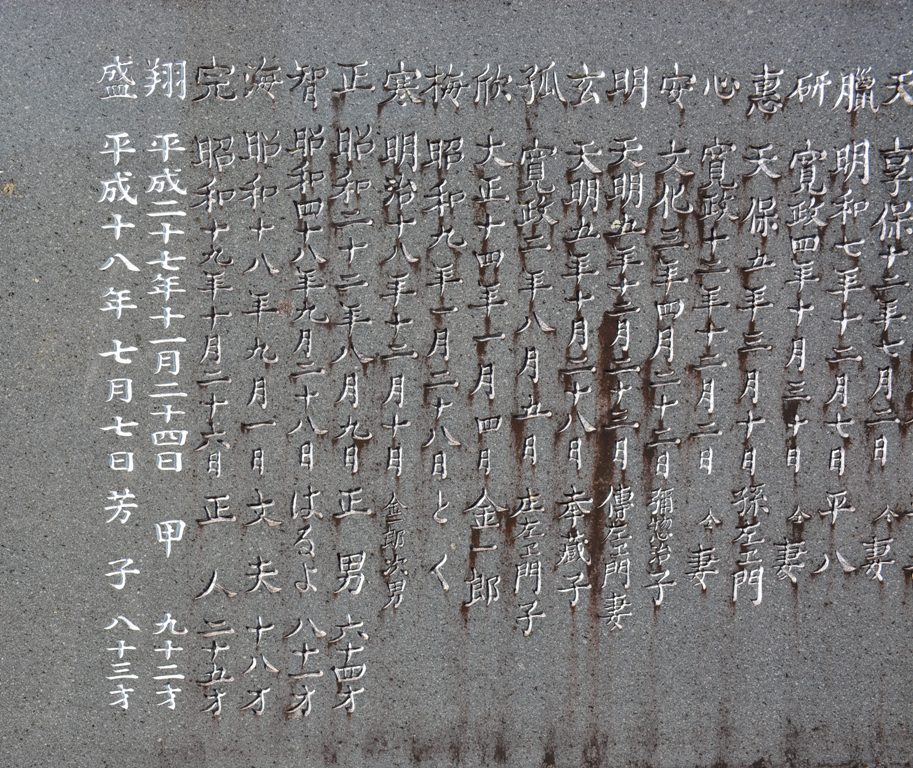 天 享保十二年七月二日
臘 明和七年十二月七日 平八
研 寛政四年十月三十日 仝妻
惠 天保五年三月十日 孫左エ門
心 寛政十二年十二月二日 仝妻
安 文化三年四月二十二日 彌惣治子
明 天明五年十二月二十三日 傳左エ門妻
玄 天明五年十月二十八日 本藏子
孤 寛政二年八月五日 庄左エ門子
欣 大正十四年一月四日 金一郎
梅 昭和九年一月二十八日 とく
寒 明治十八年十二月十日 金三郎次男
正 昭和二十二年八月九日 正男 六十四才
智 昭和四十八年九月二十八日 はるよ 八十一才
海 昭和十八年九月一日 文夫 十八才
完 昭和十九年十月二十六日 正人 二十五才
翔 平成二十七年十一月二十四日 甲 九十二才
盛 平成十八年七月七日 芳子 八十三才